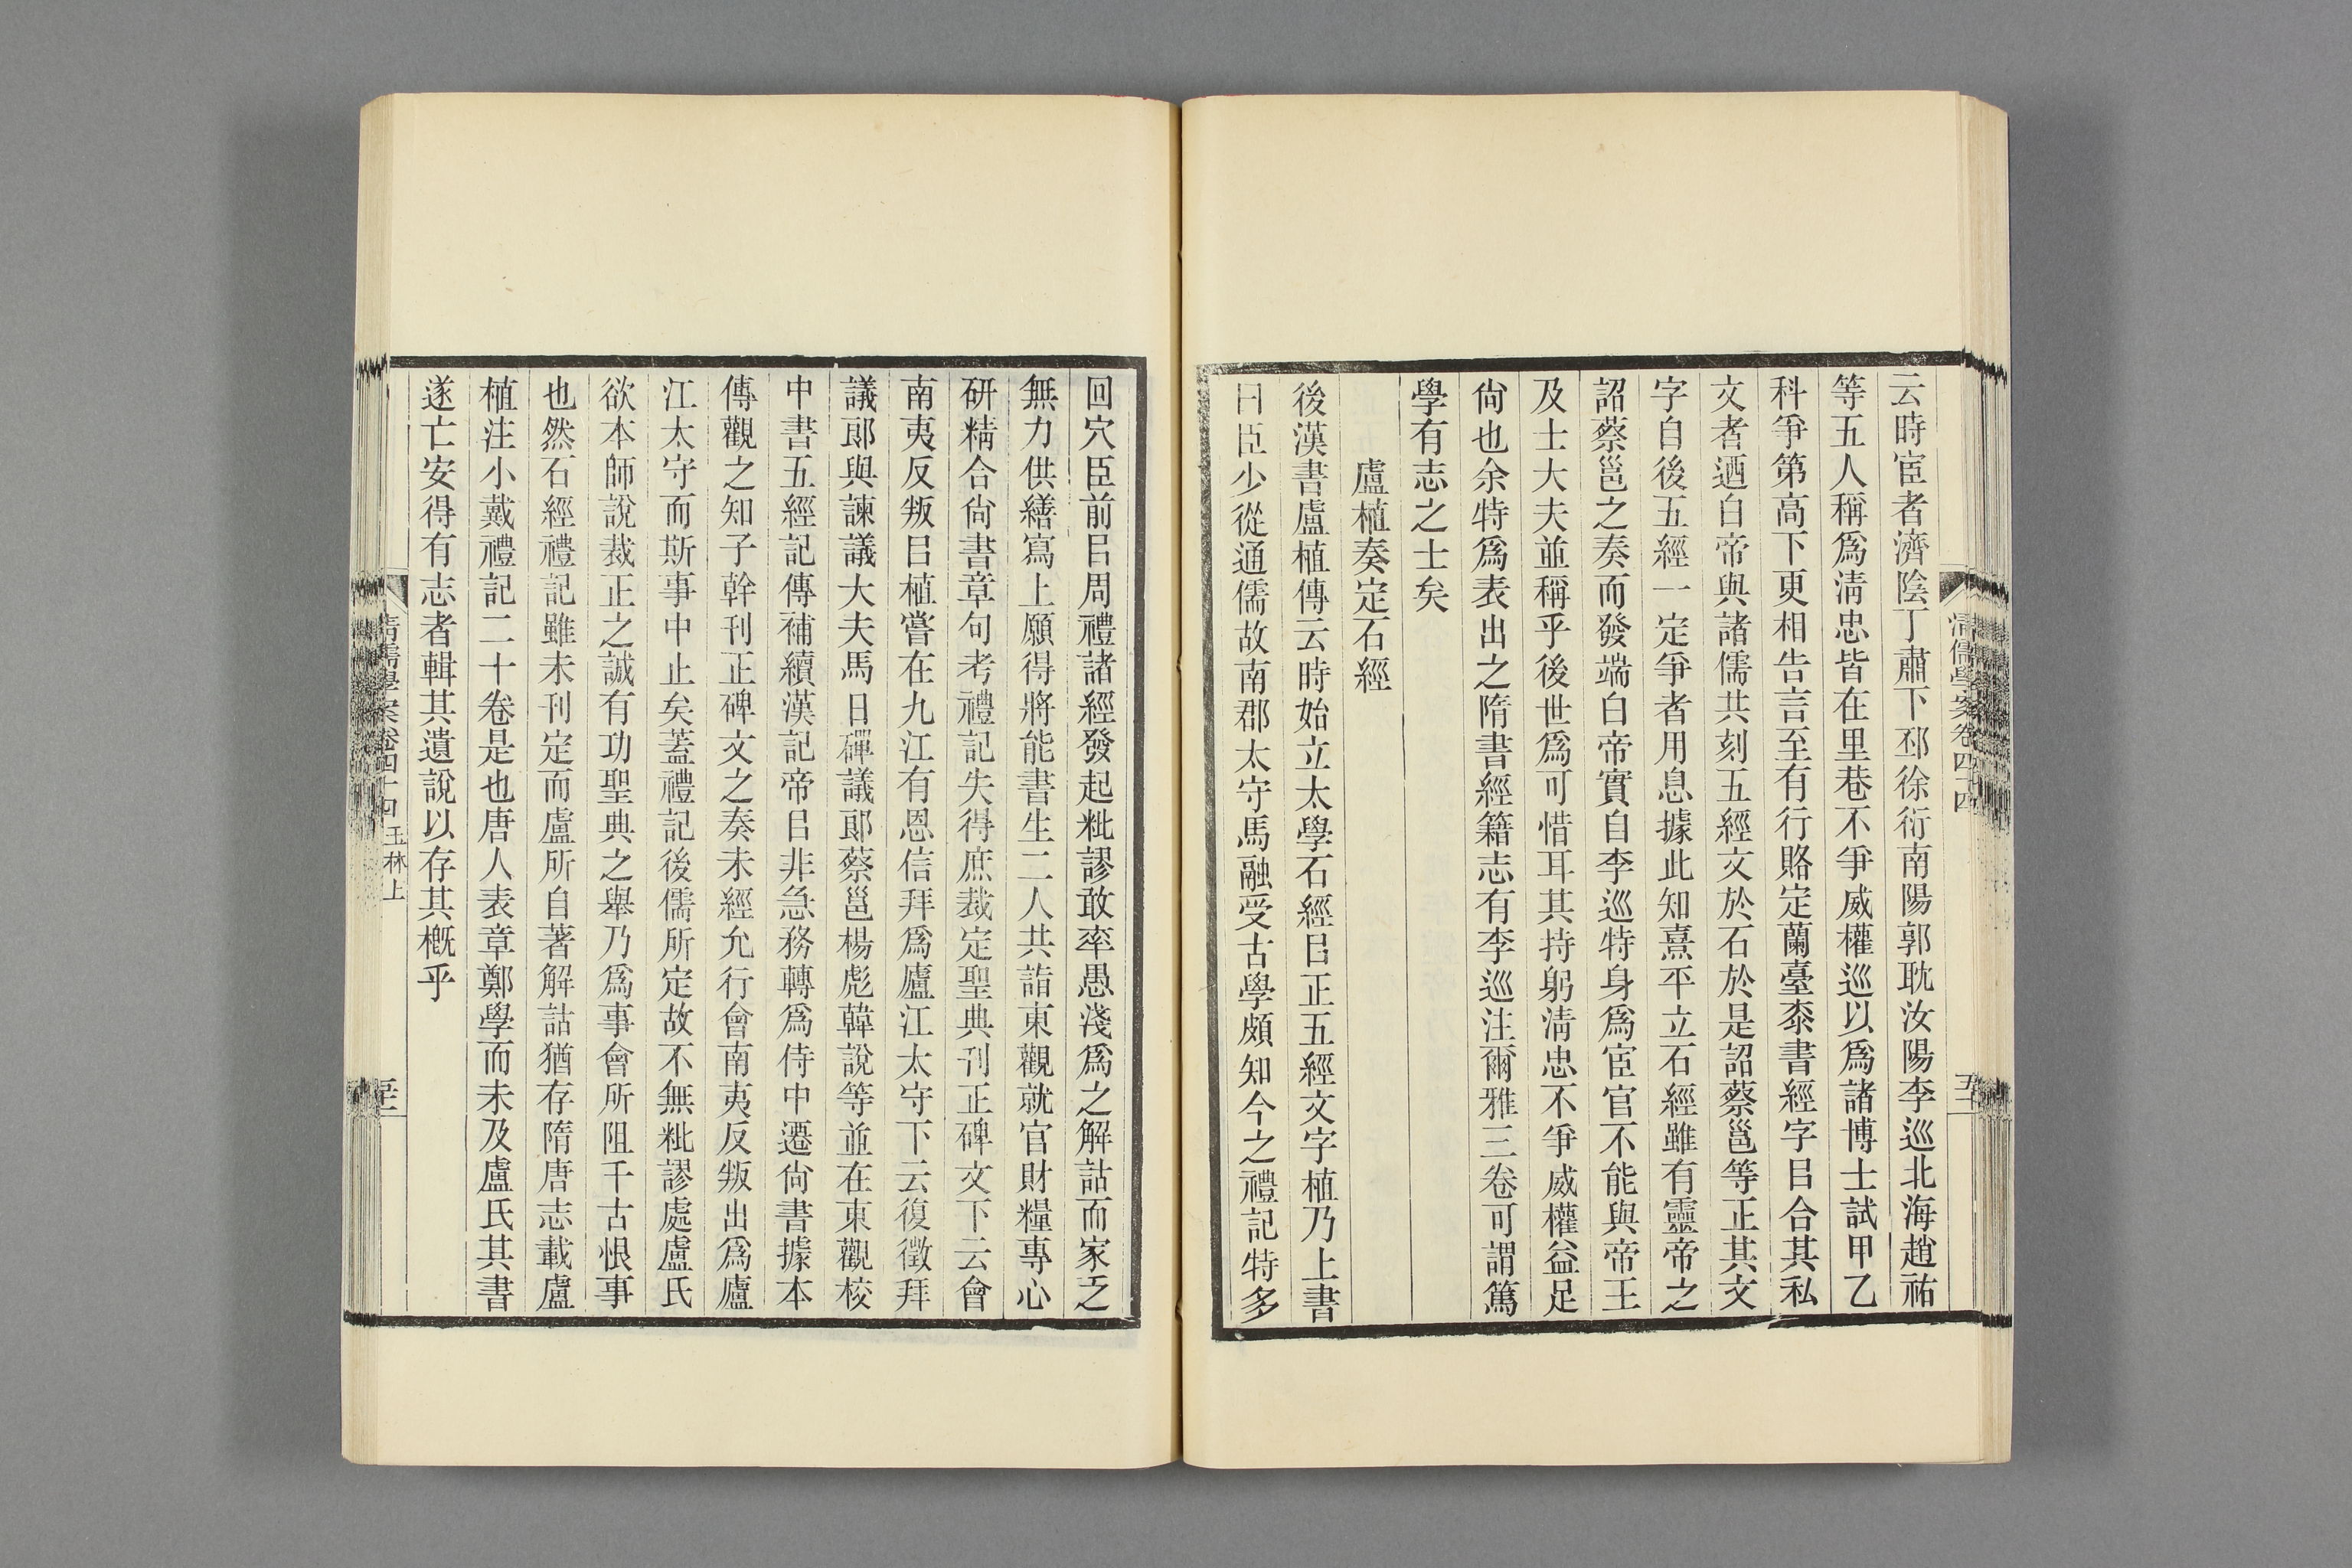 云時宦者濟陰丁肅下邳徐衍南陽郭耽汝陽李巡北海趙祐
等五人稱爲淸忠皆在里巷不爭威權巡以爲諸博士試甲乙
科爭第高下更相告言至有行賂定蘭臺桼書經字㠯合其私
文者迺白帝與諸儒共刻五經文於石於是詔蔡邕等正其文
字自後五經一定爭者用息據此知熹平立石經雖有靈帝之
詔蔡邕之奏而發端白帝實自李巡特身爲宦官不能與帝王
及士大夫並稱乎後世爲可惜耳其持躬淸忠不爭威權益足
尙也余特爲表出之隋書經籍志有李巡注爾雅三卷可謂篤
學有志之士矣
盧植奏定石經
後漢書盧植傳云時始立太學石經㠯正五經文字植乃上書
曰臣少從通儒故南郡太守馬融受古學頗知今之禮記特多
回穴臣前㠯周禮諸經發起粃謬敢率愚淺爲之解詁而家乏
無力供繕寫上願得將能書生二人共詣東觀就官財糧專心
硏精合尙書章句考禮記失得庶裁定聖典刊正碑文下云會
南夷反叛㠯植嘗在九江有恩信拜爲廬江太守下云復徵拜
議郞與諫議大夫馬日磾議郞蔡邕楊彪韓說等並在東觀校
中書五經記傳補續漢記帝㠯非急務轉爲侍中遷尙書據本
傳觀之知子幹刊正碑文之奏未經允行會南夷反叛出爲廬
江太守而斯事中止矣蓋禮記後儒所定故不無粃謬處盧氏
欲本師說裁正之誠有功聖典之舉乃爲事會所阻千古恨事
也然石經禮記雖未刊定而盧所自著解詁猶存隋唐志載盧
植注小戴禮記二十卷是也唐人表章鄭學而未及盧氏其書
遂亡安得有志者輯其遺說以存其槪乎
淸儒學案卷四十四 玉林上